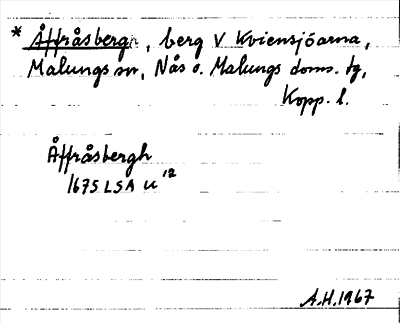 * Åffråsbergh, berg V Kviensjöarna,
Malungs sn, Nås o. Malungs doms. tg,
Kopp. l.
Åffråsbergh
1675 LSA U 12
A.H. 1967